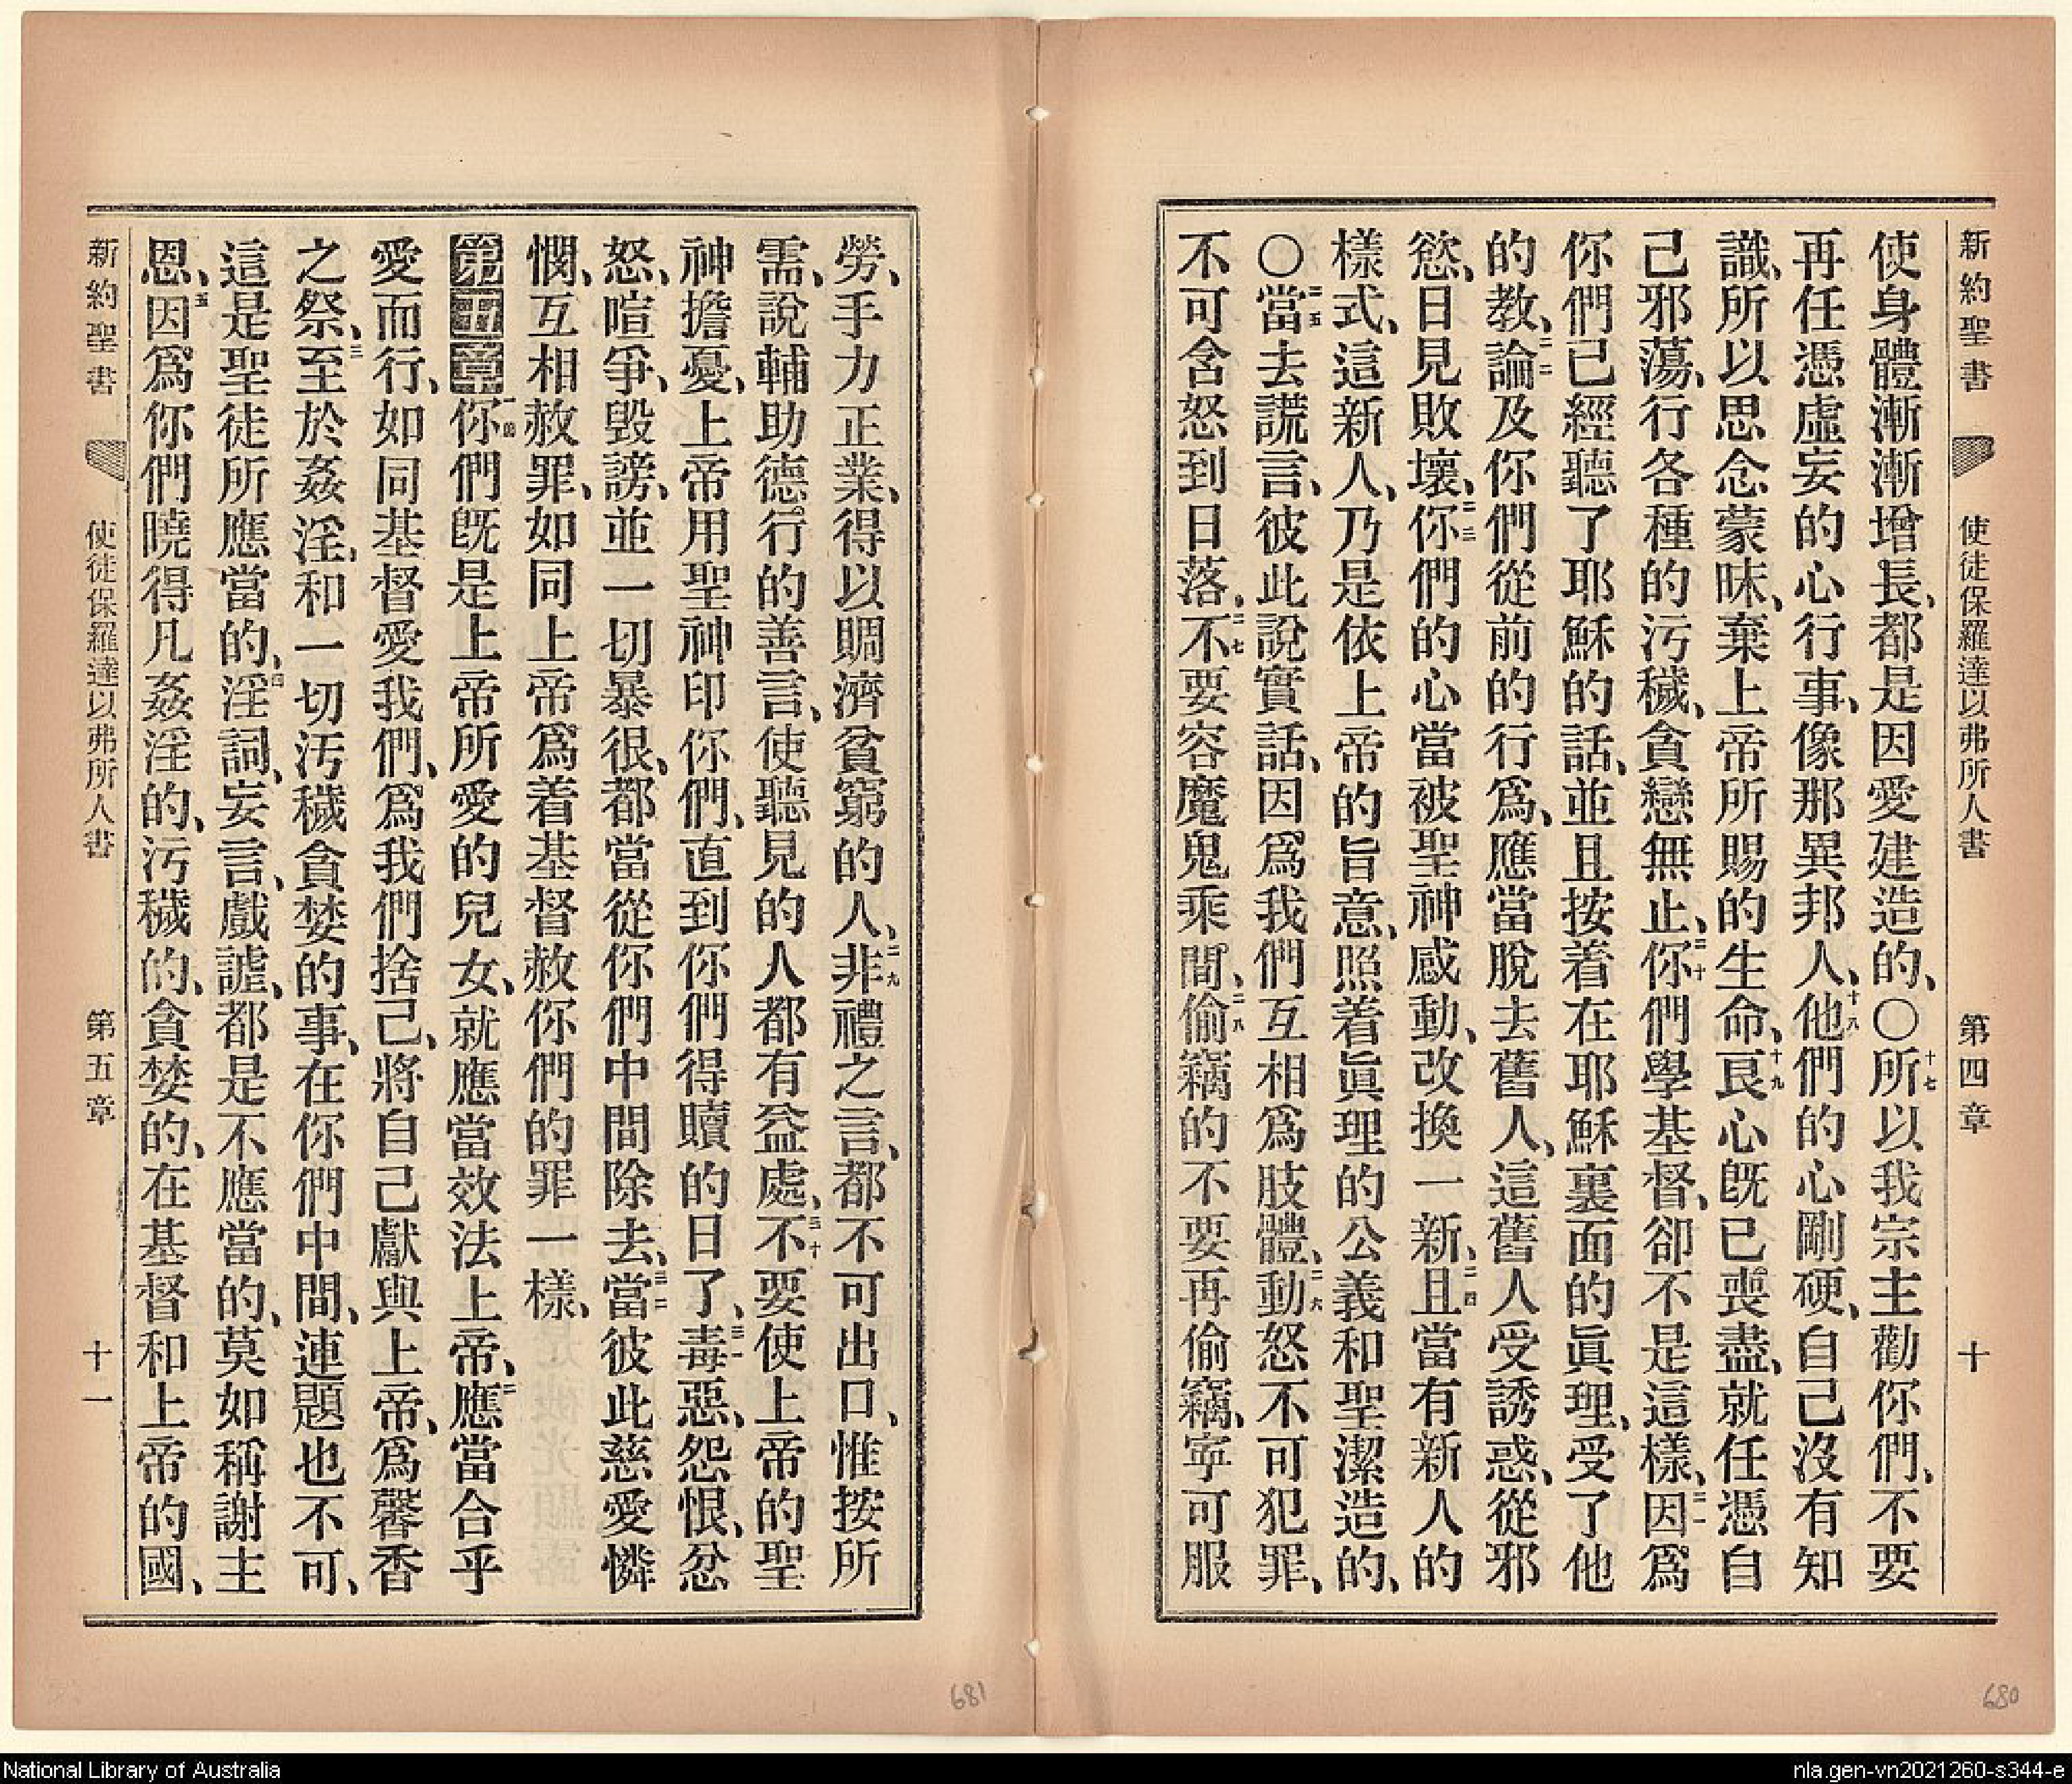 新約聖書 使徒保羅達以弗所人書 第四章 十
使身體漸漸增長、都是因愛建造的、〇十七所以我宗主勸你們、不要
再任憑虛妄的心行事、像那異邦人、十八他們的心剛硬、自己沒有知
識、所以思念蒙昧、棄上帝所賜的生命、十九艮心旣已喪盡、就任憑自
己邪蕩、行各種的污穢、貪戀無止、二十你們學基督、卻不是這樣、二一因爲
你們已經聽了耶穌的話、並且按着在耶穌裏面的眞理、受了他
的教、二二論及你們從前的行爲、應當脫去舊人、這舊人受誘惑、從邪
慾、日見敗壞、二三你們的心當被聖神感動、改換一新、二四且當有新人的
樣式、這新人、乃是依上帝的旨意、照着眞理的公義和聖潔造的、
〇二五當去謊言、彼此說實話、因爲我們互相爲肢體、二六動怒不可犯罪、
不可含怒到日落、二七不要容魔鬼乘間、二八偷竊的不要再偷竊、寧可服
勞、手力正業、得以賙濟貧窮的人、二九非禮之言、都不可出口、惟按所
需、說輔助德行的善言、使聽見的人都有益處、三十不要使上帝的聖
神擔憂、上帝用聖神印你們、直到你們得贖的日了、三一毒惡、怨恨、忿
怒、喧爭、毀謗、並一切暴很、都當從你們中間除去、三二當彼此慈愛憐
憫、互相赦罪、如同上帝爲着基督赦你們的罪一樣、
第五章一節你們旣是上帝所愛的兒女、就應當效法上帝、二應當合乎
愛而行、如同基督愛我們、爲我們捨己、將自己獻與上帝、爲馨香
之祭、三至於姦淫、和一切汚穢貪婪的事、在你們中間、連題也不可、
這是聖徒所應當的、四淫詞、妄言、戲謔、都是不應當的、莫如稱謝主
恩、五因爲你們曉得凡姦淫的、污穢的、貪婪的、在基督和上帝的國、
新約聖書 使徒保羅達以弗所人書 第五章 十一
681
680
National Library of Australia
nla.gen-vn2021260-s344-e